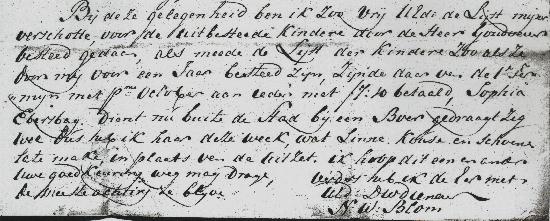 Bij deze gelegenheid ben ik Zoo vrij UEde de Lijst mijner
verschotte voor de uitbesteede Kindere door de Heer
besteed gedaan, als meede de Lijst der kindere Zoo als Ze
door mij voor een Jaar besteed Zijn, Zijnde daar van de 1e Ter-
mijn met pmo October aan ieder met f7:10 betaald, Sophia
Ebersbag. Dient nu buite de Stad bij een Boer gedraagt Zig
wel dus heb ik haar deeze week, wat Linne. Kouse, en Schoene
late make, in plaats van de uitzet. ik hoop dit een en ander
uwe goedkeuring weg mag Drage, verders heb ik de Eer met
de meeste achting te blyve
UEd: D:W: Dienaar
N: W: Blom